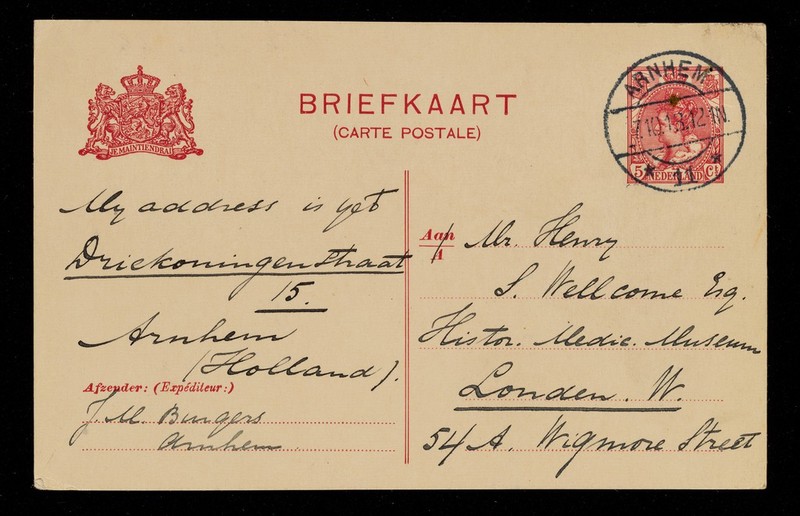 JE MAINTIENDRAI
BRIEFKAART
(CARTE POSTALE)
ARNHEM
12-1N.
11
5 Ct
NEDERLAND
My address is yet
Driekoningenstraat
15.
Arnhem
(Holland).
Afzender: (Expéditeur:)
J.M. Burgers
Arnhem
Aan
A
Mr. Henry
S. Wellcome Esq.
Histor. Medic. Museum
London. W.
54 A. Wigmore Street